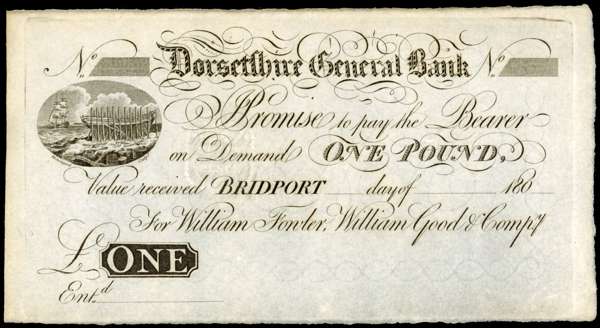 No Dorsetshire General Bank No
I Promise to pay the Bearer
on Demand ONE POUND,
Value received BRIDPORT day of 180
For William Fowler, William Good & Compy
£ ONE
Ent.d